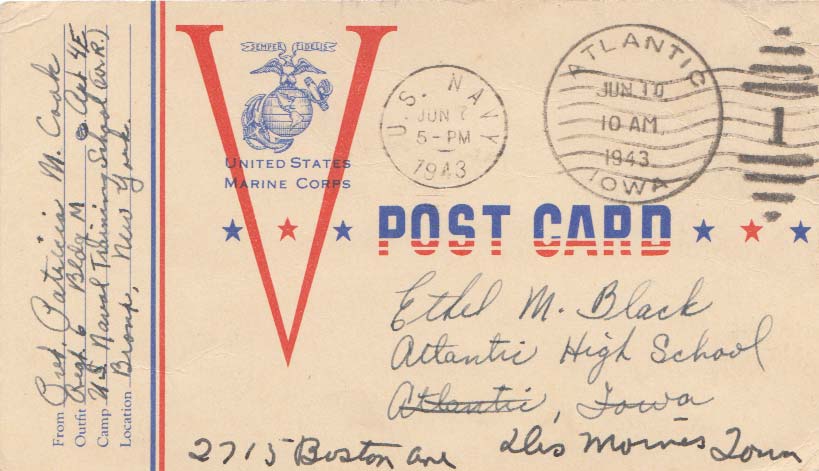 From Pvt. Patricia M. Cook
Outfit Regt 6 Bldg M Apt 4E
Camp US Naval Training School (WR.)
Location Bronx, New York.
SEMPER FIDELIS
UNITED STATES
MARINE CORPS
U.S. NAVY
JUN 7
5-PM
1943
ATLANTIC
JUN 10
10 AM
1943
IOWA
1
POST CARD
Ethel M. Black
Atlantic High School
Atlantic, Iowa
2715 Boston Ave Des Moines Iowa